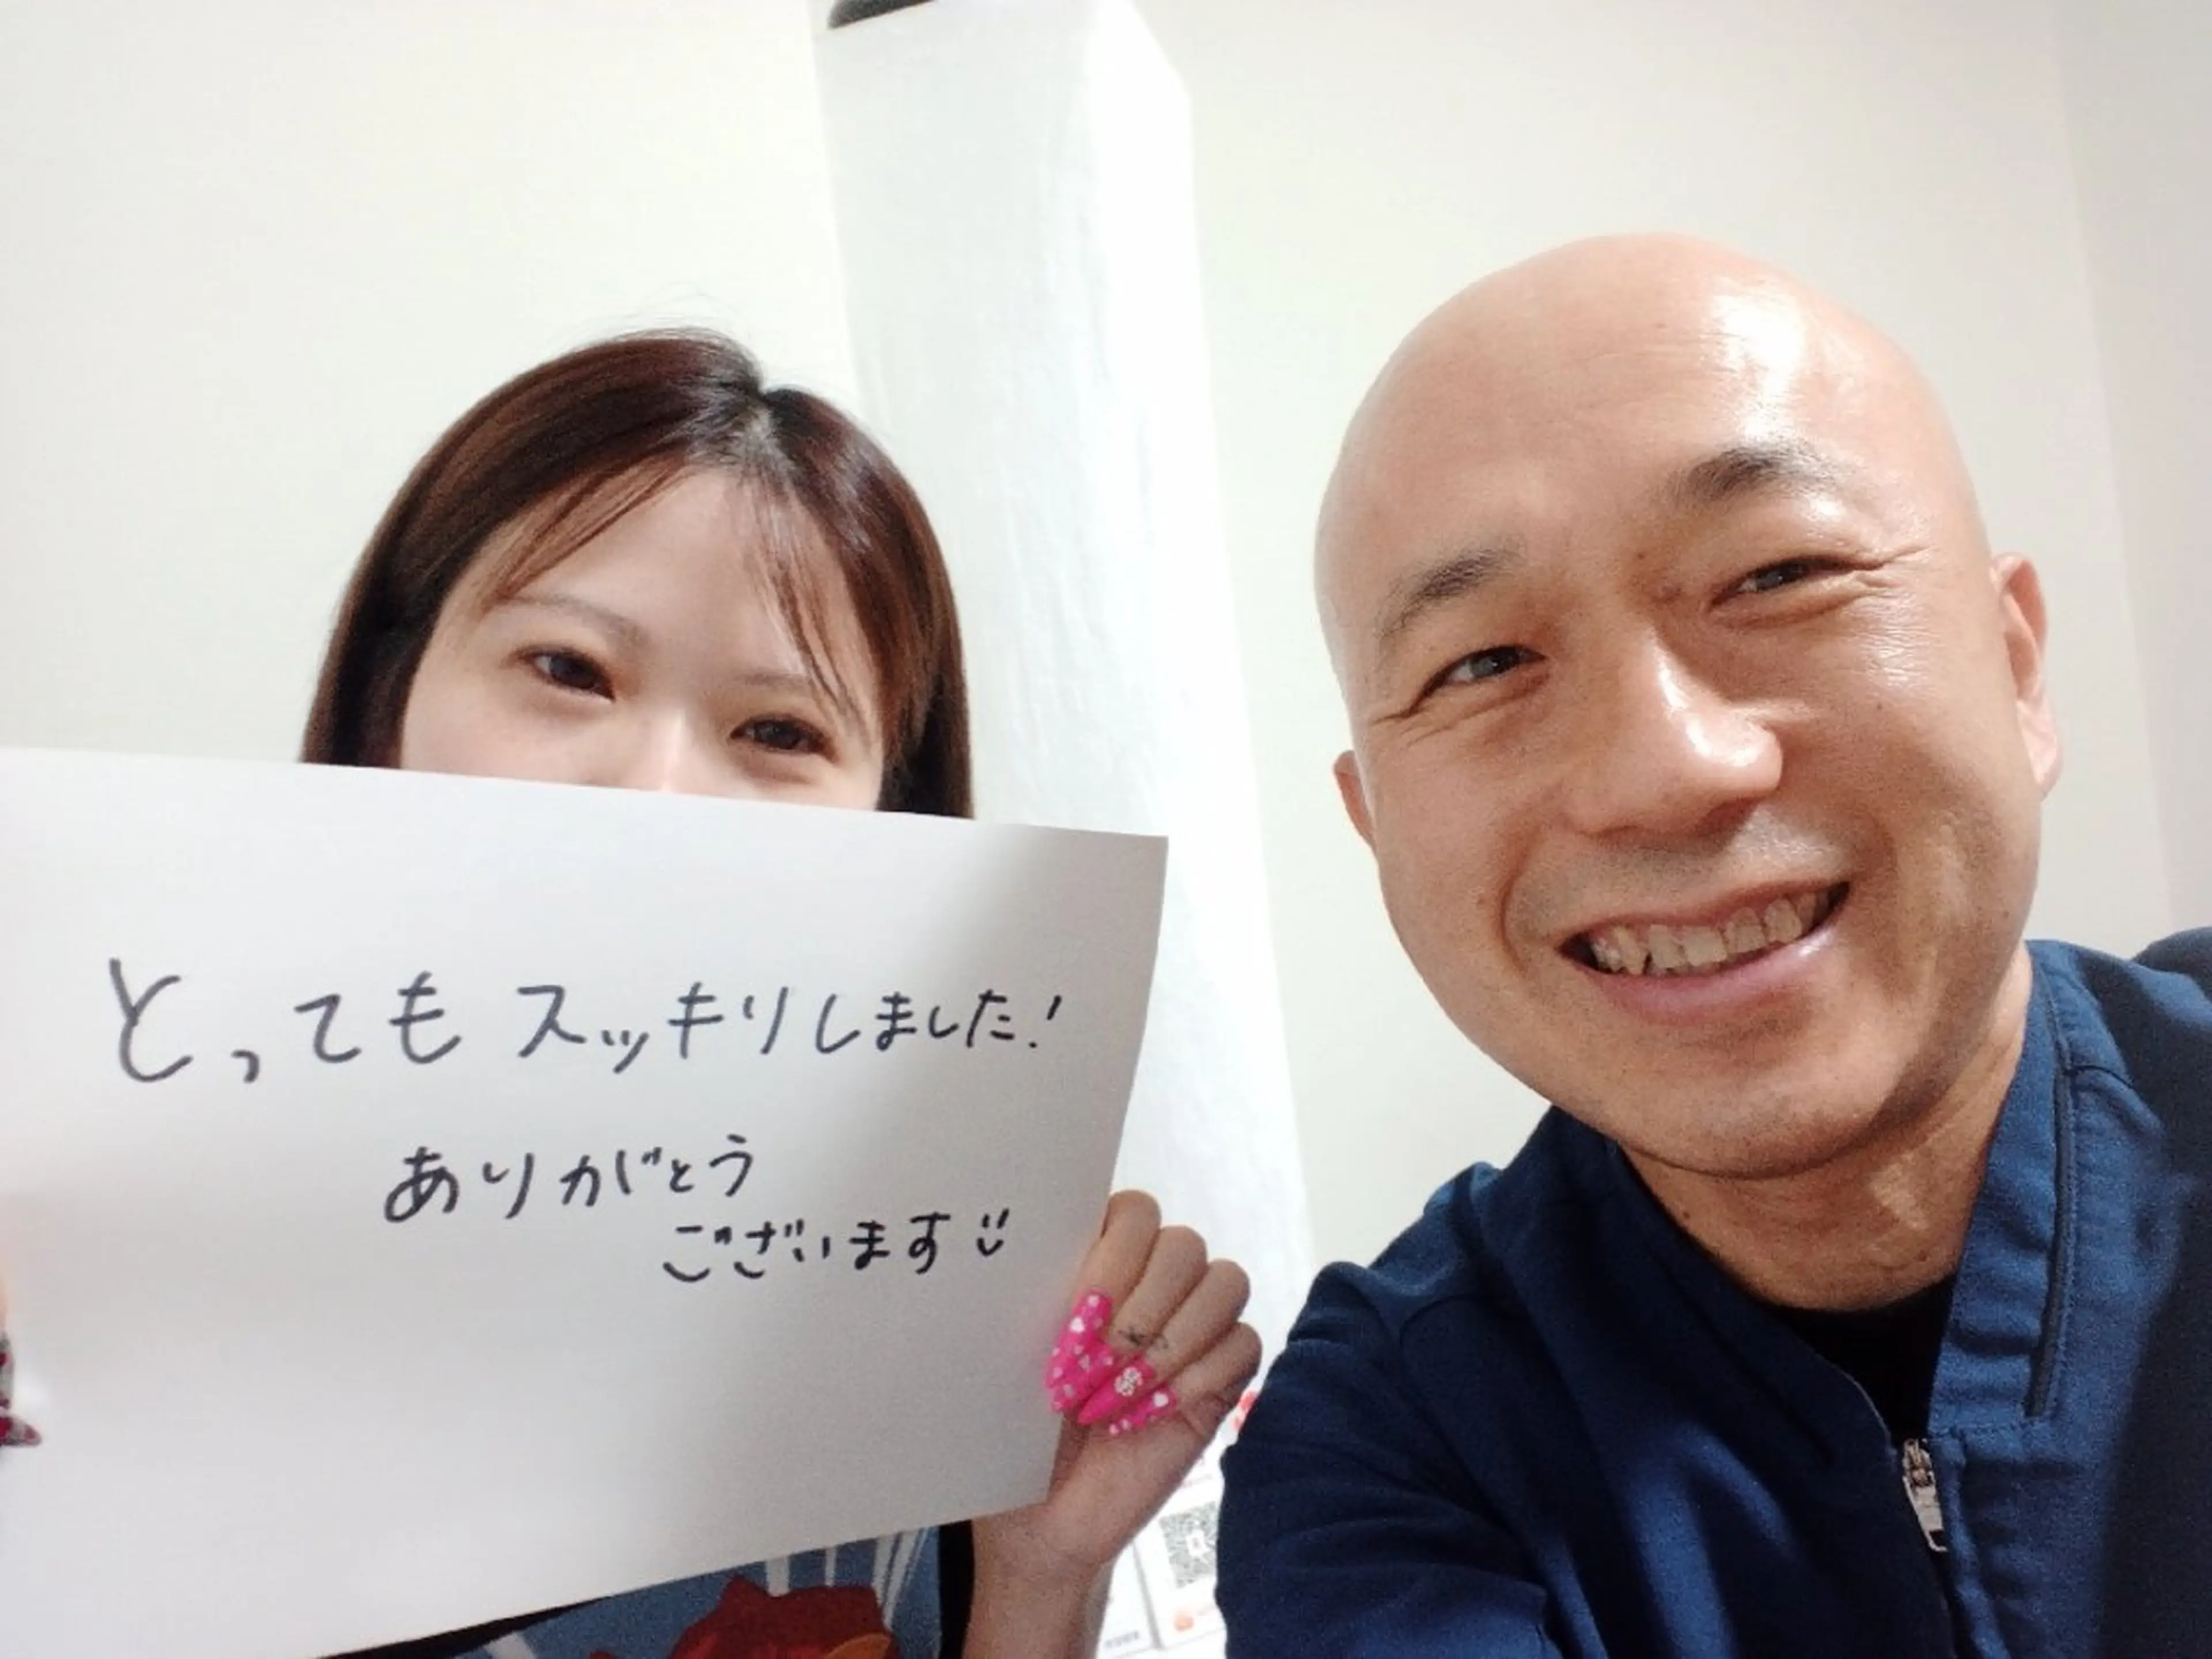 とってもスッキリしました!
ありがとう
ございます